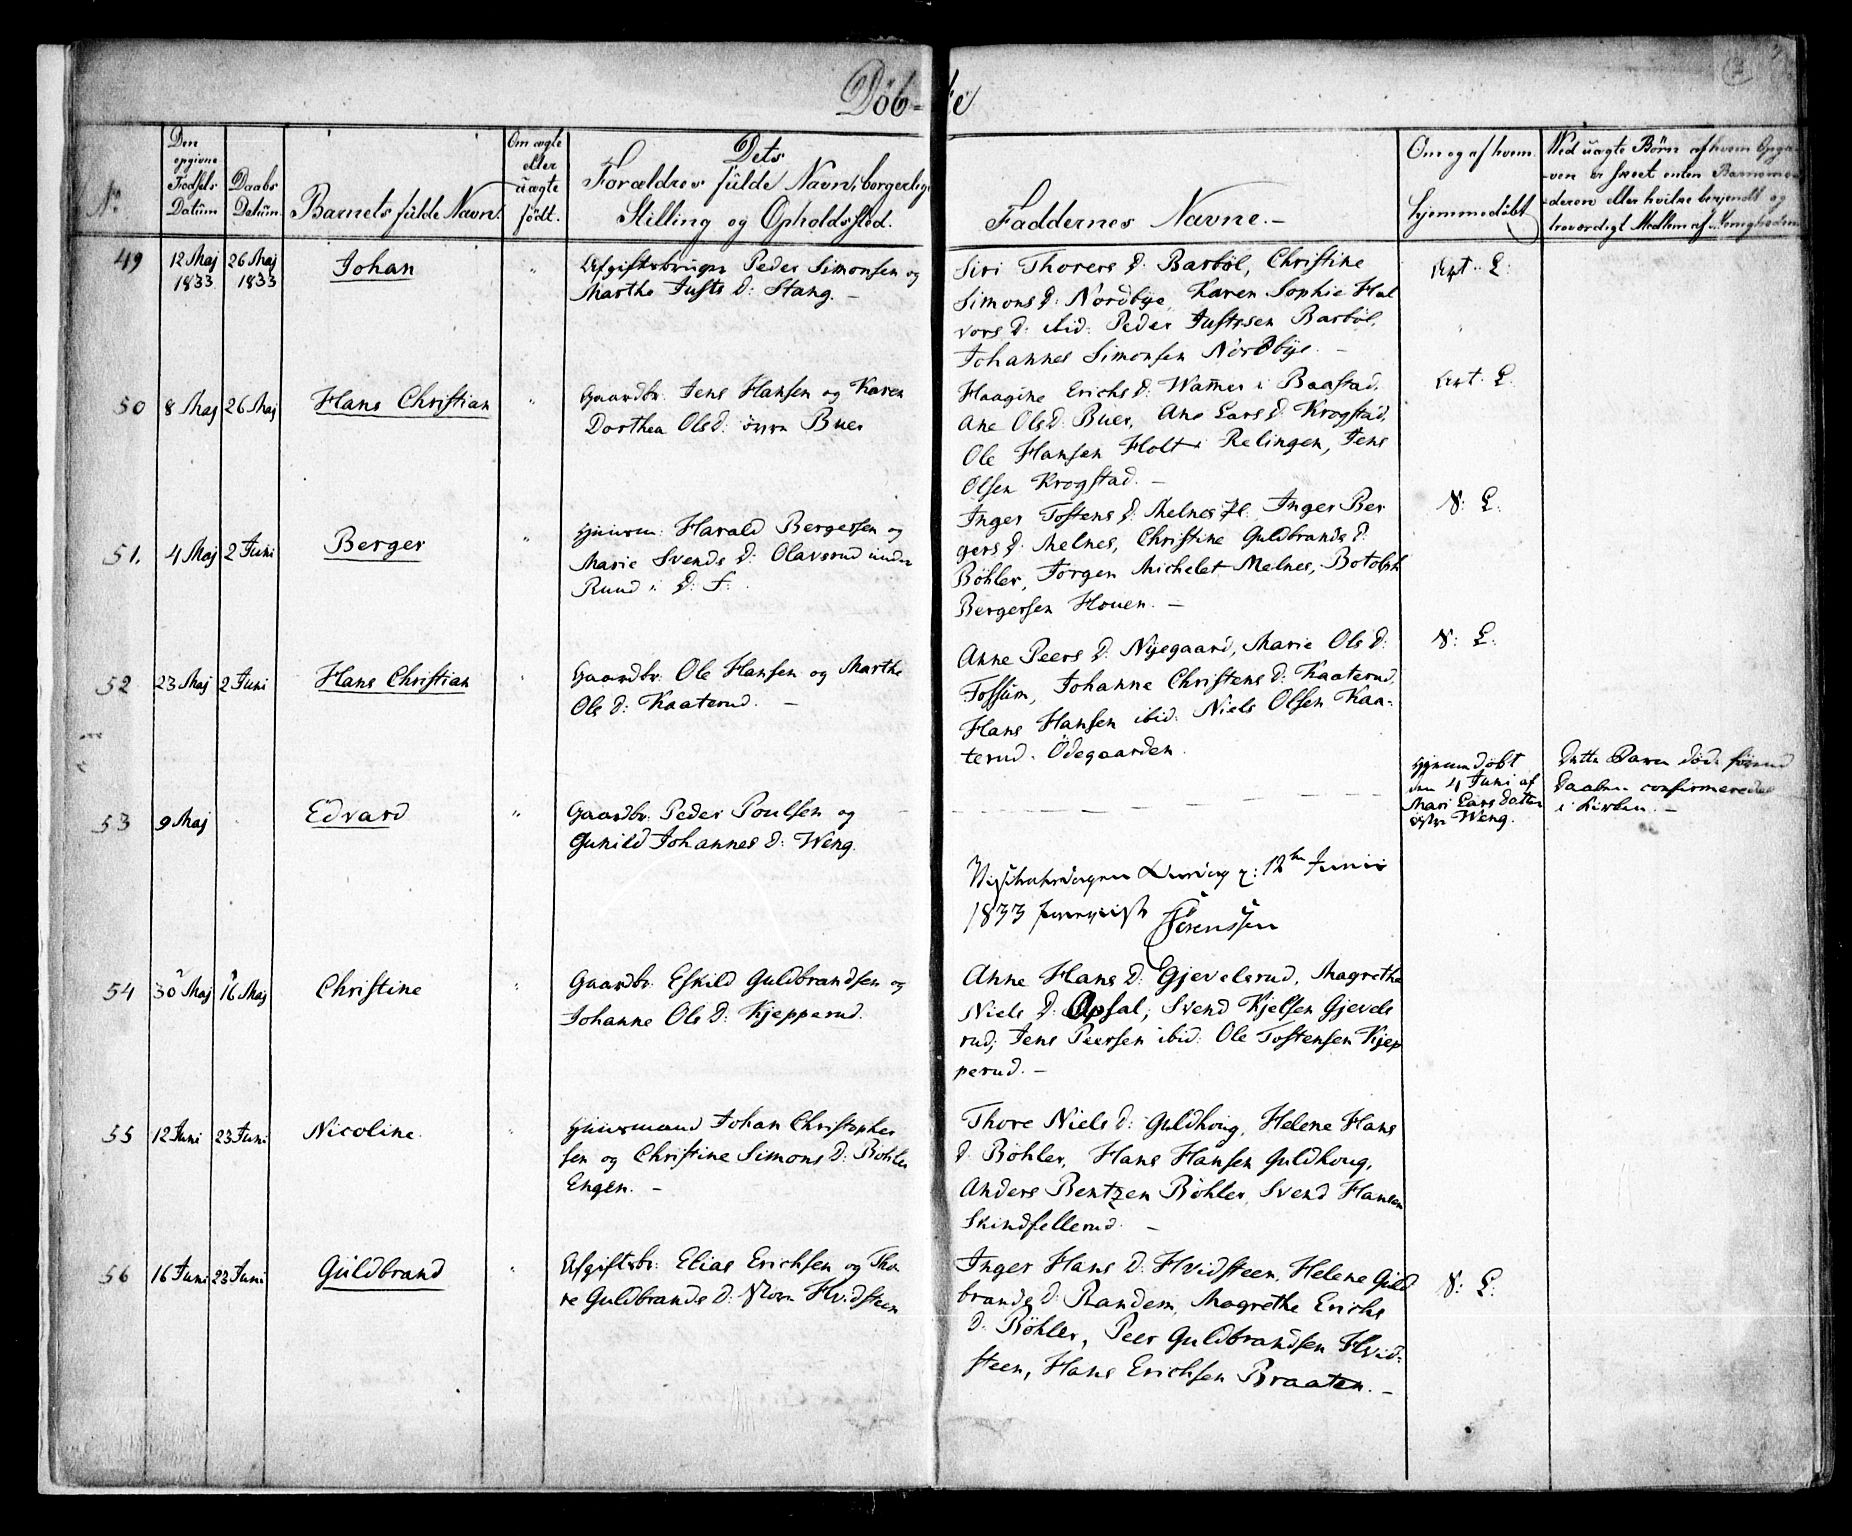 Döb-te
No.
Den
opgivne
Fødsels
Datüm
Daabs
Datüm.
Barnets fülde Navn.
Om ægte
eller
üægte
født.
Dets
Forældres fülde Navn, borgerlige
Stilling og Opholdssted.
Faddernes Navne.-
Om og af hvem
hjemmedøbt
Ved üægte Børn af hvem Opgi-
-ven er skeet enten Barnemo-
-deren eller hvilke bekjendt og
troværdigt Medlem af Menigheden
49
12 Maj
1833
26 Maj
1833
Johan
"
Afgiftsbruger Peder Simonsen og
Marthe Justs D: Stang. -
Siri Thorers D: Barbøl, Christine
Simons D: Nordbye, Karen Sophie Hal
vors D: ibid: Peder Justssen Barbøl,
Johannes Simonsen Nordbye. -
L:
50
8 Maj
26 Maj
Hans Christian
"
Gaardbr: Jens Hansen og Karen
Dorthea Ols D: øvre Buer
Haagine Erichs D: Wammer i Baastad,
Ane Ols D: Buer, Ane Lars D: Krogstad,
Ole Hansen Holt i Relingen, Jens
Olsen Krogstad. -
L:
51.
4 Maj
2 Juni
Berger
"
Huusm: Harald Bergersen og
Marie Svends D: Olavsrud under
Ruud i D: F:
Inger Tostens D: Melnes Inger Ber
gers D: Melnes, Christine Guldbrands D:
Böhler, Jørgen Michelet Melnes, Botolph
Bergersen Houen. -
N: L:
52
23 Maj
2 Juni
Hans Christian
"
Gaardbr: Ole Hansen og Marthe
Ols D: Kaaterud. -
Anne Peers D: Nyegaard, Marie Ols D:
Fossüm, Johanne Christens D: Kaaterud,
Hans Hansen ibid: Niels Olsen Kaa-
terud. Ödegaarden.
N: L:
53
9 Maj
Edvard
"
Gaardbr: Peder Poulsen og
Gunild Johannes D: Weng.
Hjemmedøbt
den 4 Juni af
Mari Larsdatter
østre Weng.
Dette Barn døde førend
Daaben confirmeredes
i Kirken. -
Visitatsdagen Lørdag d: 12te Junii
1833
Sörenssen
54
30 Maj
16 Maj
Christine
"
Gaardbr: Eskild Guldbrandsen og
Johanne Ols D: Kjepperud.
Anne Hans D: Gjevelsrud, Magrethe
Niels D: Opsal, Svend Kjelsen Gjevels
rud, Jens Peersen ibid: Ole Tostensen Kjep
perud. -
55
12 Juni
23 Juni
Nicoline
"
Huusmand Johan Christopher
sen og Christine Simons D: Bøhler
Engen. -
Thore Niels D: Guldhoug, Helene Hans
D: Böhler, Hans Hansen Guldhoug,
Anders Bentzen Böhler, Svend Hansen
Skindfellerud. -
56
16 Juni
23 Juni
Güldbrand
"
Afgiftsbr: Elias Erichsen og Tho
re Guldbrands D: Hvidsteen
Inger Hans D: Hvidsteen, Helene Guld
brands D: Randem, Magrethe Erichs
D: Böhler, Peer Guldbrandsen Hvid-
steen, Hans Erichsen Braaten. -
N: L: